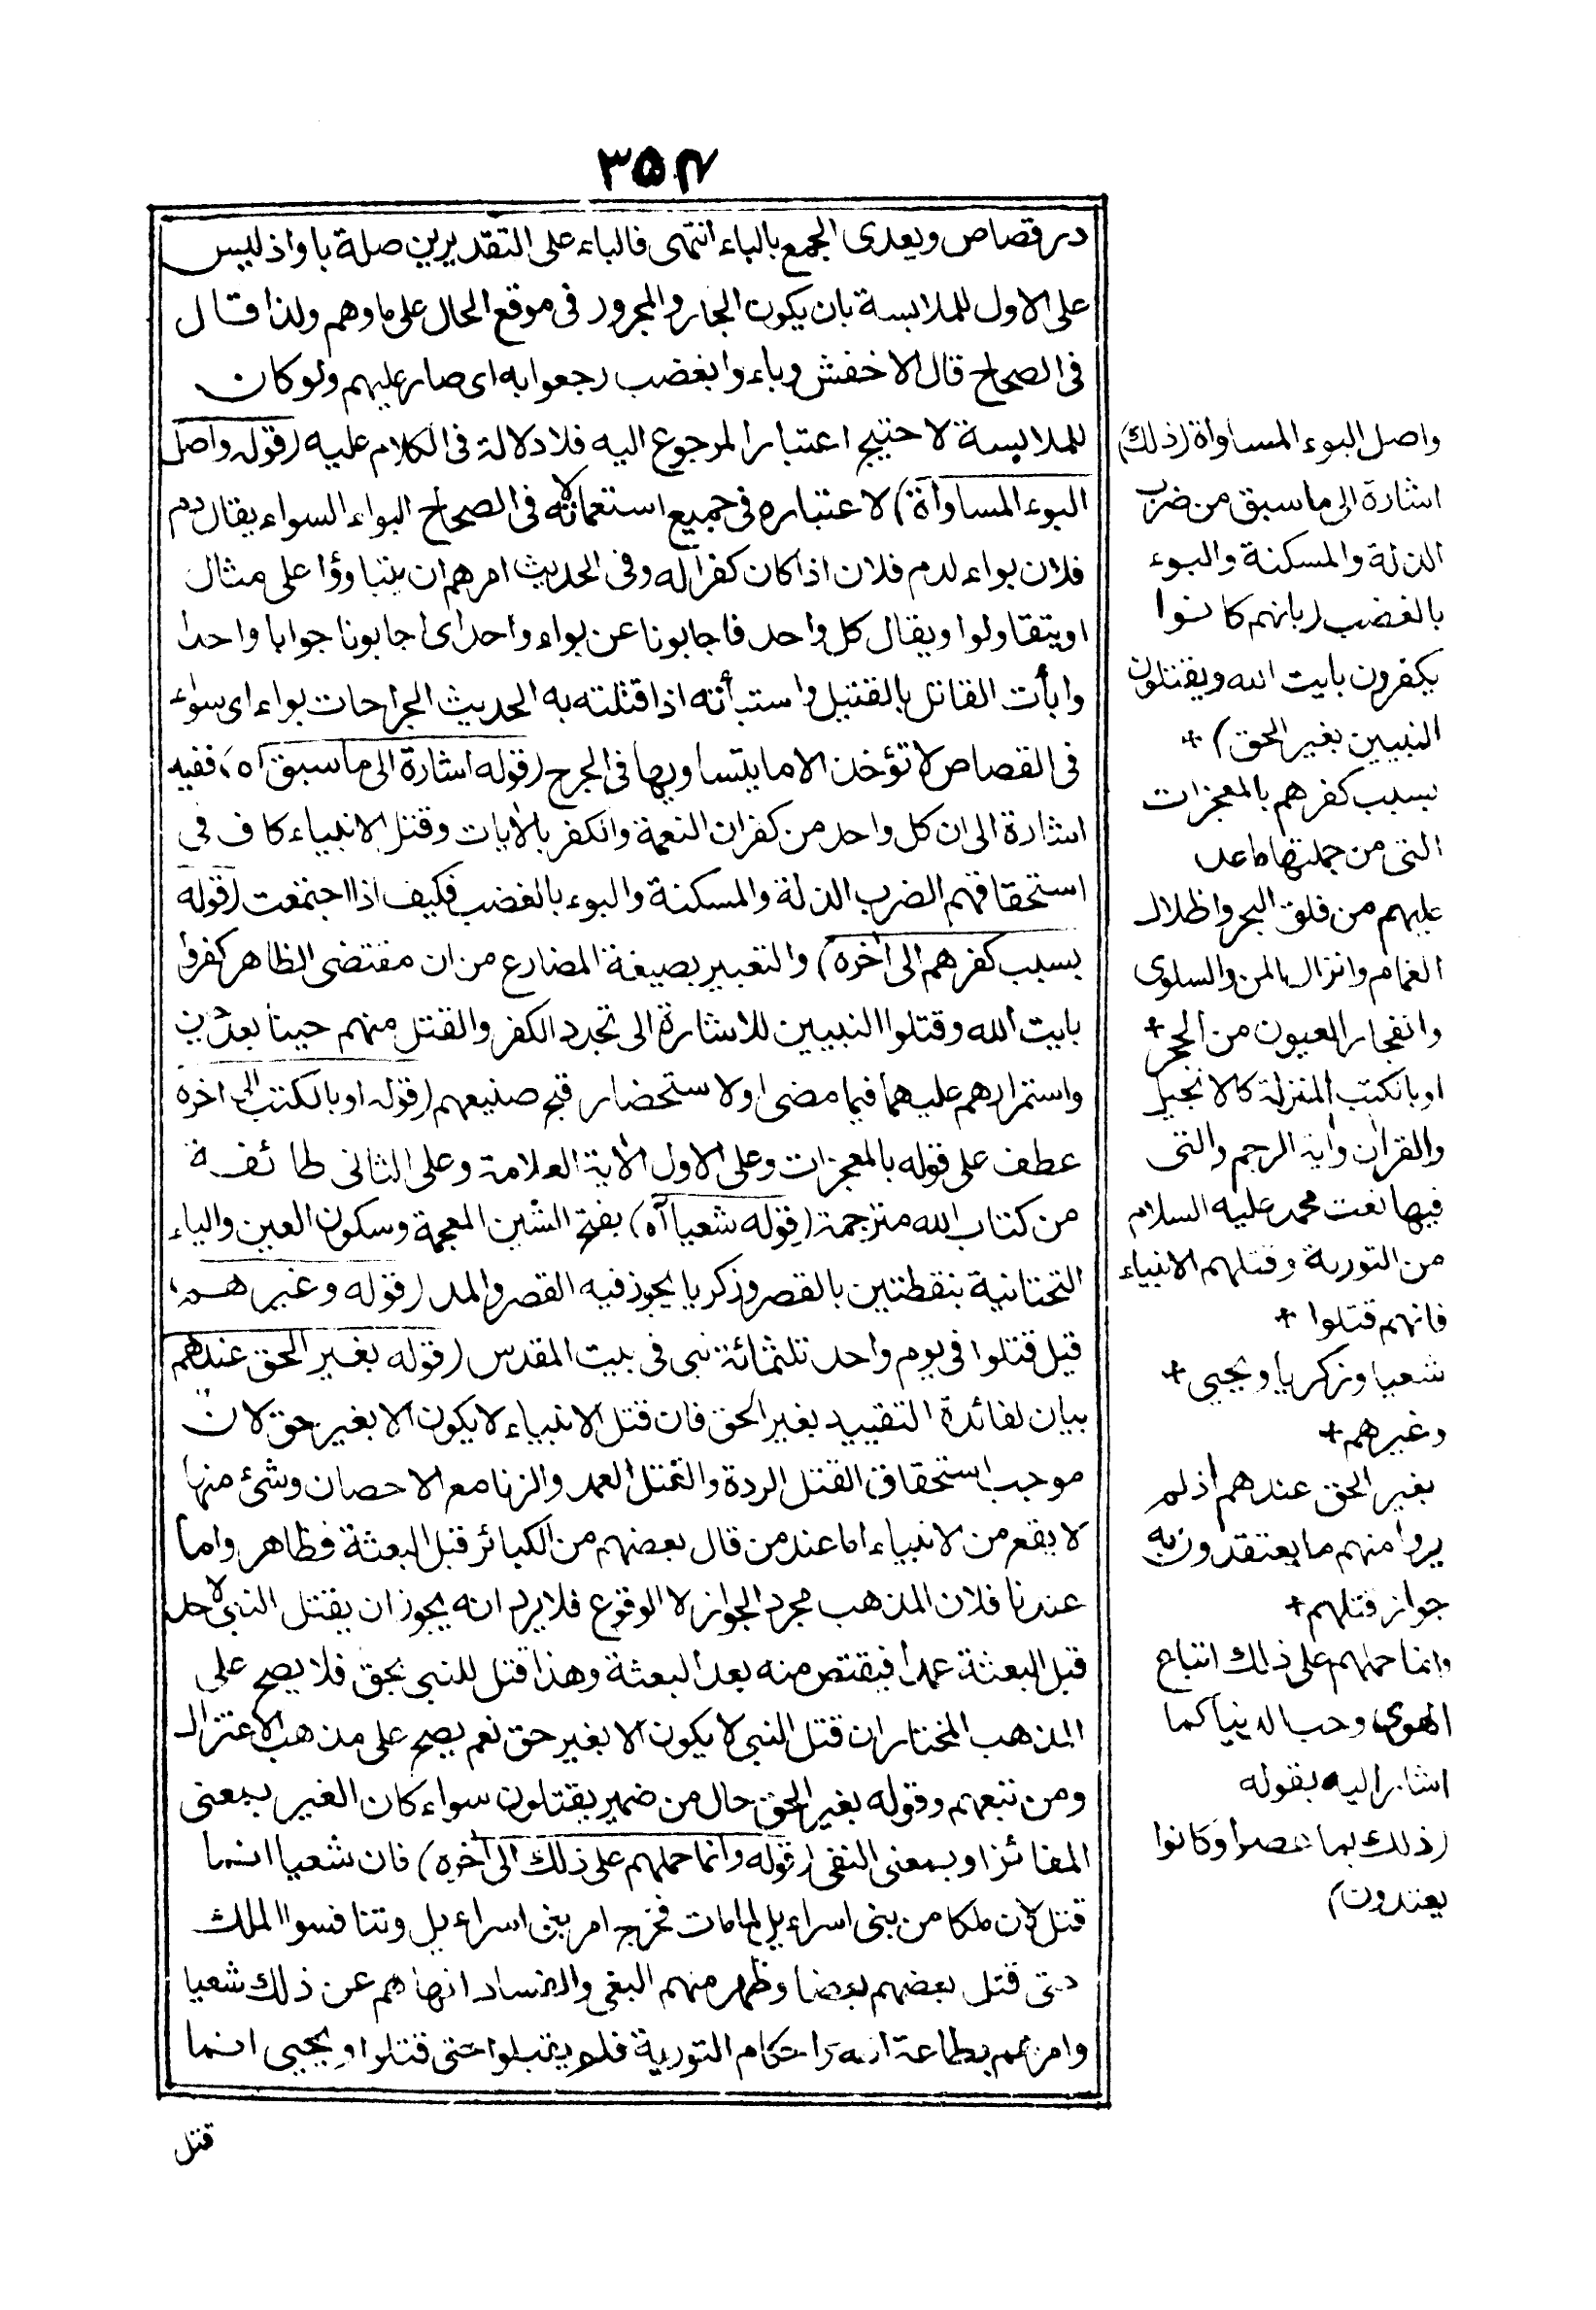 ۳۵۴
در قصاص ويعدى الجمع بالباء انتهى فالباء على التقديرين صلة باوا ذليس
على الاول للملابسة بان يكون الجار والمجرور فى موقع الحال على ما وهم ولذا قال
فى الصحاح قال الاخفش وباءوا بغضب رجعوا به اى صار عليهم ولو كان
للملابسة لاحتيج اعتبار المرجوع اليه فلا دلالة فى الكلام عليه (قوله واصل
البوء المساواة) لاعتباره فى جميع استعمالاته فى الصحاح البواء السواء يقال دم
فلان بواء لدم فلان اذا كان كفرا له وفى الحديث امرهم ان يتباوؤا على مثال
او يتقاولوا ويقال كل واحد فاجابونا عن بواء واحد اى اجابونا جوابا واحدا
وابأت القاتل بالقتيل واستبأته اذا قتلته به الحديث الجراحات بواء اى سواء
فى القصاص لا تؤخذ الا ما يتساويها فى الجرح (قوله اشارة الى ما سبق اه) ففيه
اشارة الى ان كل واحد من كفران النعمة والكفر بالأيات وقتل الانبياء كاف فى
استحقاقهم الضرب الذلة والمسكنة والبوء بالغضب فكيف اذا اجتمعت (قوله
بسبب كفرهم الى أخره) والتعبير بصيغة المضارع من ان مقتضى الظاهر كفروا
بايت الله وقتلوا النبيين للاشارة الى تجدد الكفر والقتل منهم حينا بعد حين
واستمرارهم عليهما فيما مضى او لاستحضار قبح صنيعهم (قوله او بالكتب الى اخره
عطف على قوله بالمعجزات وعلى الاول الأية العلامة وعلى الثانى طائفة
من كتاب الله مترجمة (قوله شعيا آه) بفتح الشين المعجمة وسكون العين والياء
التحتانية بنقطتين بالقصر وزكريا يجوز فيه القصر والمد (قوله وغيرهم)
قيل قتلوا فى يوم واحد ثلثمائة نبى فى بيت المقدس (قوله بغير الحق عندهم
بيان لفائدة التقييد بغير الحق فان قتل الانبياء لا يكون الا بغير حق لان
موجب استحقاق القتل الردة والقتل العمد والزنا مع الاحصان وشئ منها
لا يقع من الانبياء اما عند من قال بعصمتهم من الكبائر قبل البعثة فظاهر واما
عندنا فلان المذهب مجرد الجواز لا الوقوع فلا يرد انه يجوز ان يقتل النبى لاحد
قبل البعثة عمدا فيقتص منه بعد البعثة وهذا قتل للنبى بحق فلا يصح على
المذهب المختار ان قتل النبى لا يكون الا بغير حق نعم يصح على مذهب الاعتزال
ومن تبعهم وقوله بغير الحق حال من ضمير يقتلون سواء كان الغير بمعنى
المغائر او بمعنى النفى (قوله وانما حملهم على ذلك الى أخره) فان شعيا انما
قتل لان ملكا من بنى اسراءيل لما مات فخرج امر بنى اسراءيل وتنافسوا الملك
حتى قتل بعضهم بعضا وظهر منهم البغى والفساد انهاهم عن ذلك شعيا
وامرهم بطاعة الله واحكام التورية فلم يقبلوا حتى قتلوا ويحيى انما
قتل
واصل البوء المساواة (ذلك)
اشارة الى ما سبق من ضرب
الذلة والمسكنة والبوء
بالغضب (بانهم كانوا
يكفرون بايت الله ويقتلون
النبيين بغير الحق) +
بسبب كفرهم بالمعجزات
التى من جملتها ما عد
عليهم من فلق البحر واظلال
الغمام وانزال المن والسلوى
وانفجار العيون من الحجر +
او بالكتب المنزلة كالانجيل
والقرأن وأية الرجم والتى
فيها نعت محمد عليه السلام
من التورية وقتلهم الانبياء
فانهم قتلوا +
شعيا وزكريا ويحيى +
وغيرهم +
بغير الحق عندهم اذ لم
يروا منهم ما يعتقدون به
جواز قتلهم +
وانما حملهم على ذلك اتباع
الهوى وحب الدنيا كما
اشار اليه بقوله
(ذلك بما عصوا وكانوا
يعتدون)